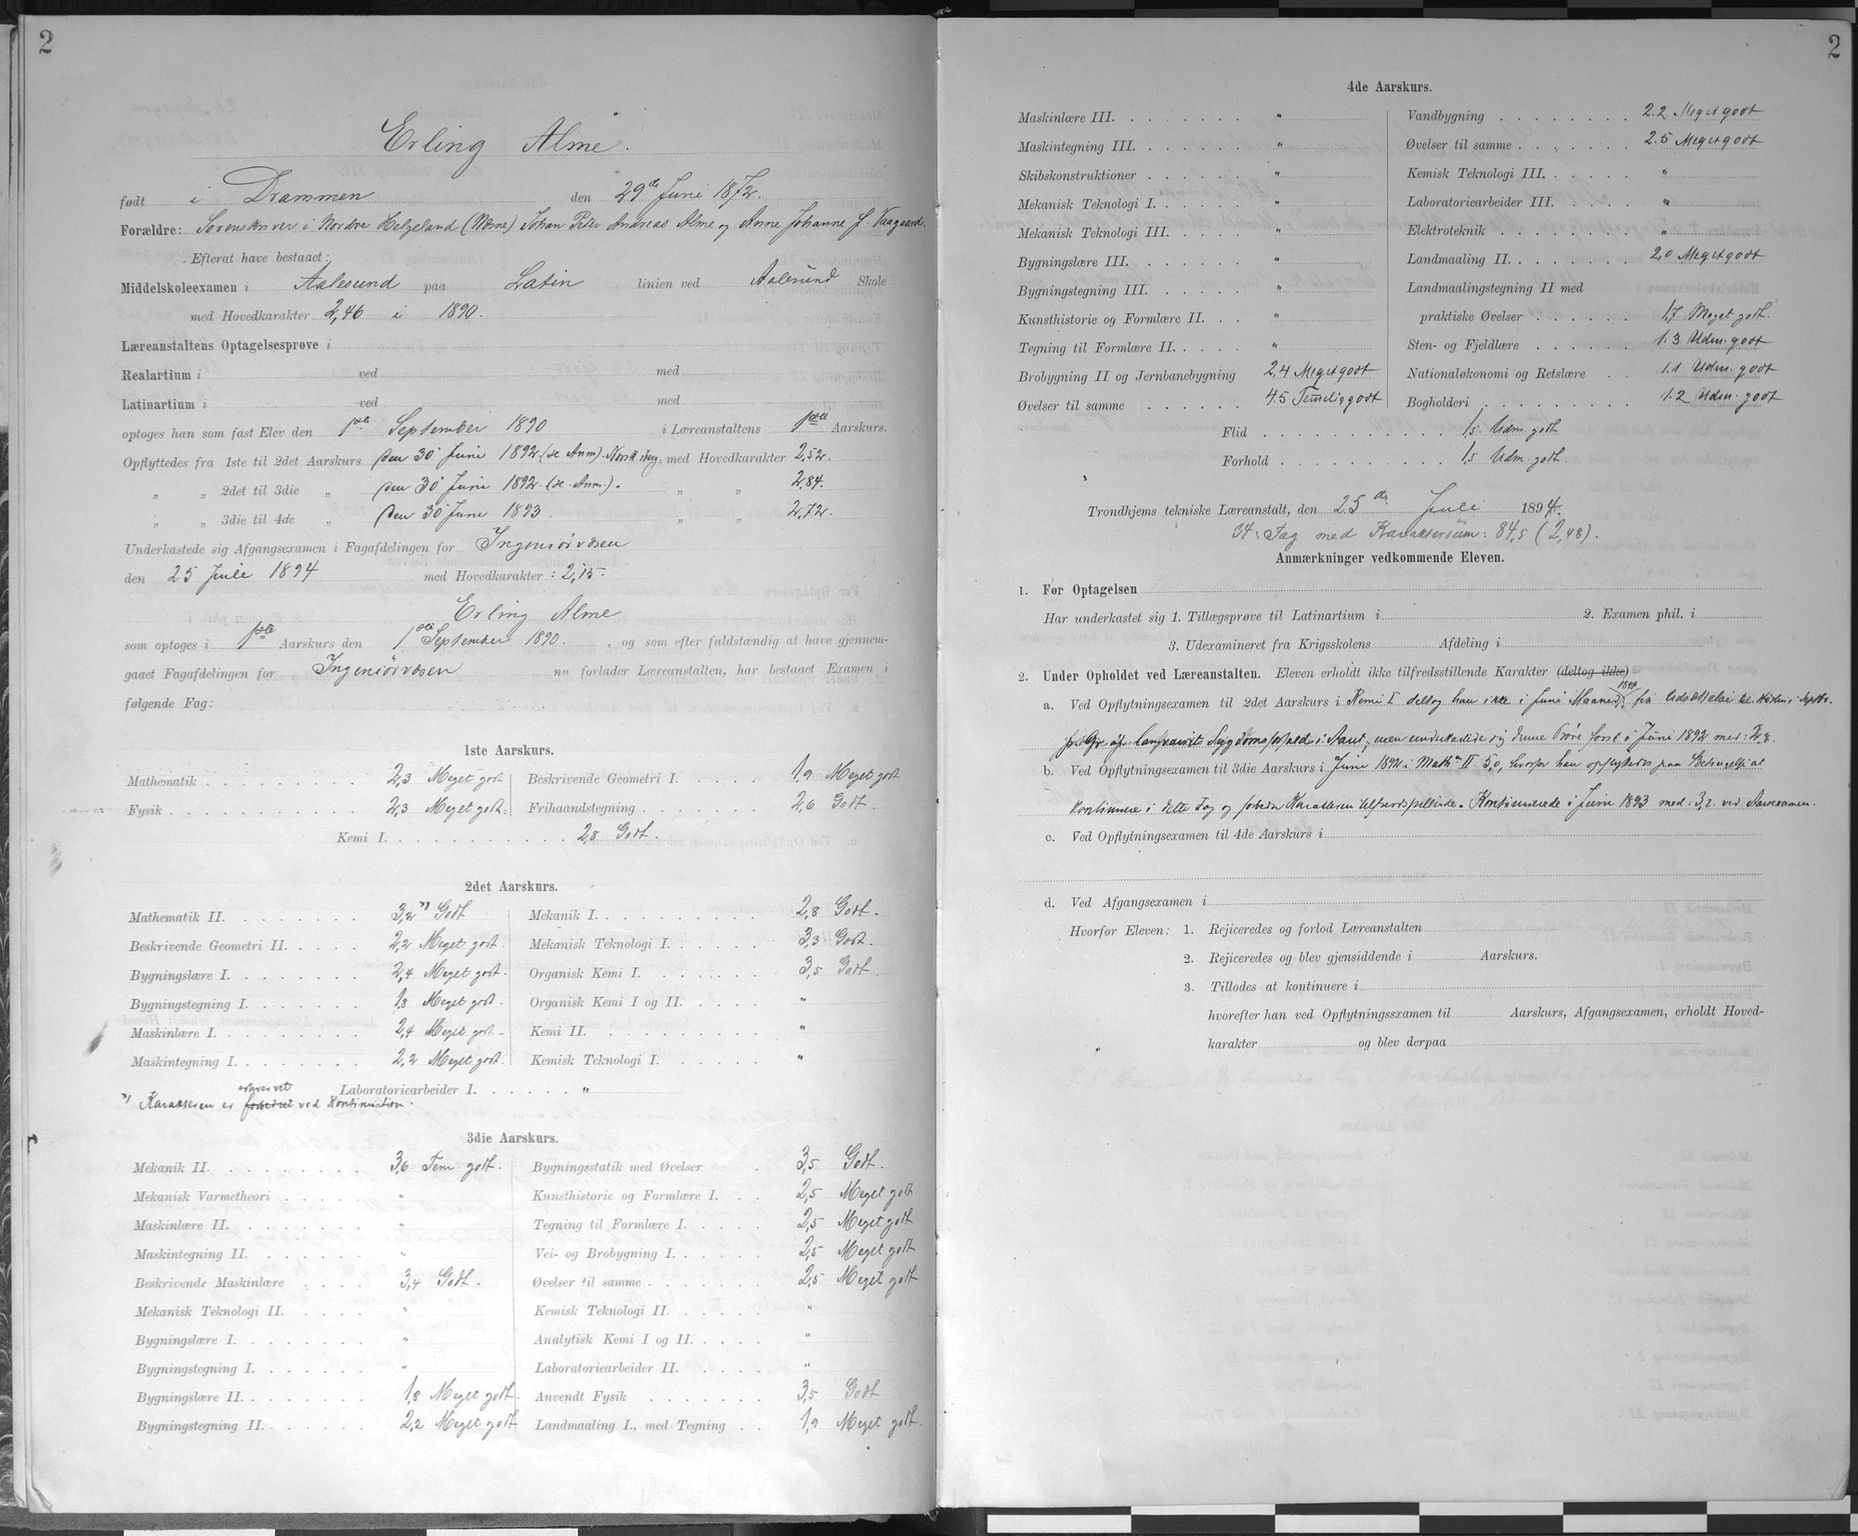 2
Erling Alme.
født i Drammen den 29de Juni 1872.
Forældre: Sorenskriver i Nordre Helgeland (Næsne) Johan Peter Andreas Alme og Anne Johanne f. Vaagaard.
Efterat have bestaaet:
Middelskoleexamen i Aalesund paa Latin linien ved Aalesund Skole
med Hovedkarakter 2,46 i 1890.
Læreanstaltens Optagelsesprøve i
Realartium i ved med
Latinartium i ved med
optoges han som fast Elev den 1ste September 1890 i Læreanstaltens 1ste Aarskurs.
Opflyttedes fra 1ste til 2det Aarskurs den 30 Juni 1892 (se Anm). med Hovedkarakter 2,52.
„ „ 2det til 3die „ den 30 Juni 1892. (se Anm.). „ „ 2,84.
„ „ 3die til 4de „ den 30 Juni 1893. „ „ 2,72.
Underkastede sig Afgangsexamen i Fagafdelingen for Ingeniørvæsen
den 25 Juli 1894 med Hovedkarakter: 2,15.
Erling Alme
som optoges i 1ste Aarskurs den 1ste September 1890. , og som efter fuldstændig at have gjennem-
gaaet Fagafdelingen for Ingeniørvæsen nu forlader Læreanstalten, har bestaaet Examen i
følgende Fag:
1ste Aarskurs.
Mathematik 2,3 Meget godt Beskrivende Geometri I. 1,9 Meget godt
Fysik 2,3 Meget godt. Frihaandstegning 2,6 Godt.
Kemi I. 2,8 Godt.
2det Aarskurs.
Mathematik II. 3,2 *) Godt Mekanik I. 2,8 Godt.
Beskrivende Geometri II. 2,2 Meget godt. Mekanisk Teknologi I. 3,3 Godt.
Bygningslære I. 2,4 Meget godt. Organisk Kemi I. 3,5 Godt
Bygningstegning I. 1,8 Meget godt. Organisk Kemi I og II. „
Maskinlære I. 2,4 Meget godt. Kemi II. „
Maskintegning I. 2,2 Meget godt. Kemisk Teknologi I. „
Laboratoriearbeider I. „
*) Karakteren er forbedret erhvervet ved Kontinuation.
3die Aarskurs.
Mekanik II. 3,6 Tem. godt. Bygningsstatik med Øvelser 3,5 Godt.
Mekanisk Varmetheori „ Kunsthistorie og Formlære I. 2,5 Meget godt
Maskinlære II. „ Tegning til Formlære I. 2,5 Meget godt
Maskintegning II. „ Vei- og Brobygning I. 2,5 Meget godt
Beskrivende Maskinlære 3,4 Godt. Øvelser til samme 2,5 Meget godt
Mekanisk Teknologi II. „ Kemisk Teknologi II. „
Bygningslære I. „ Analytisk Kemi I og II. „
Bygningstegning I. „ Laboratoriearbeider II. „
Bygningslære II. 1,8 Meget godt. Anvendt Fysik 3,5 Godt
Bygningstegning II. 2,2 Meget godt Landmaaling I., med Tegning 1,9 Meget godt.
2
4de Aarskurs.
Maskinlære III. „ Vandbygning 2.2 Meget godt
Maskintegning III. „ Øvelser til samme 2.5 Meget godt
Skibskonstruktioner „ Kemisk Teknologi III. „
Mekanisk Teknologi I. „ Laboratoriearbeider III. „
Mekanisk Teknologi III. „ Elektroteknik „
Bygningslære III. „ Landmaaling II. 2,0 Meget godt
Bygningstegning III. „ Landmaalingstegning II med
Kunsthistorie og Formlære II. „ praktiske Øvelser 1,7 Meget godt.
Tegning til Formlære II. „ Sten- og Fjeldlære 1.3 Udm. godt
Brobygning II og Jernbanebygning 2.4 Meget godt Nationaløkonomi og Retslære 1.1 Udm. godt
Øvelser til samme 4.5 Temelig godt Bogholderi 1.2 Udm. godt
Flid 1,5 Udm. godt
Forhold 1,5 Udm. godt.
Trondhjems tekniske Læreanstalt, den 25de Juli 1894.
34: Fag med Karaktersum: 84,5 (2,48).
Anmærkninger vedkommende Eleven.
1. Før Optagelsen
Har underkastet sig 1. Tillægsprøve til Latinartium i 2. Examen phil. i
3. Udexamineret fra Krigsskolens Afdeling i
2. Under Opholdet ved Læreanstalten. Eleven erholdt ikke tilfredsstillende Karakter (deltog ikke)
a. Ved Opflytningsexamen til 2det Aarskurs i Kemi I deltog han ikke i Juni Maaned 1891, fik Udsættelse til Høsten i Septbr.
Sygdomsforfald i Aaret, men underkastede sig denne Prøve først i Juni 1892 med: 2,8.
b. Ved Opflytningsexamen til 3die Aarskurs i Juni 1892 i Math. II 5,0, hvorfor han opflyttedes paa Betingelse at
kontinuere i dette Fag og forbedre Karakteren tilfredsstillende. Kontinuerede i Juni 1893 med: 3,2. ved Aarsexamen.
c. Ved Opflytningsexamen til 4de Aarskurs i
d. Ved Afgangsexamen i
Hvorfor Eleven: 1. Rejiceredes og forlod Læreanstalten
2. Rejiceredes og blev gjensiddende i Aarskurs.
3. Tillodes at kontinuere i
hvorefter han ved Opflytningssxamen til Aarskurs, Afgangsexamen, erholdt Hoved-
karakter og blev derpaa